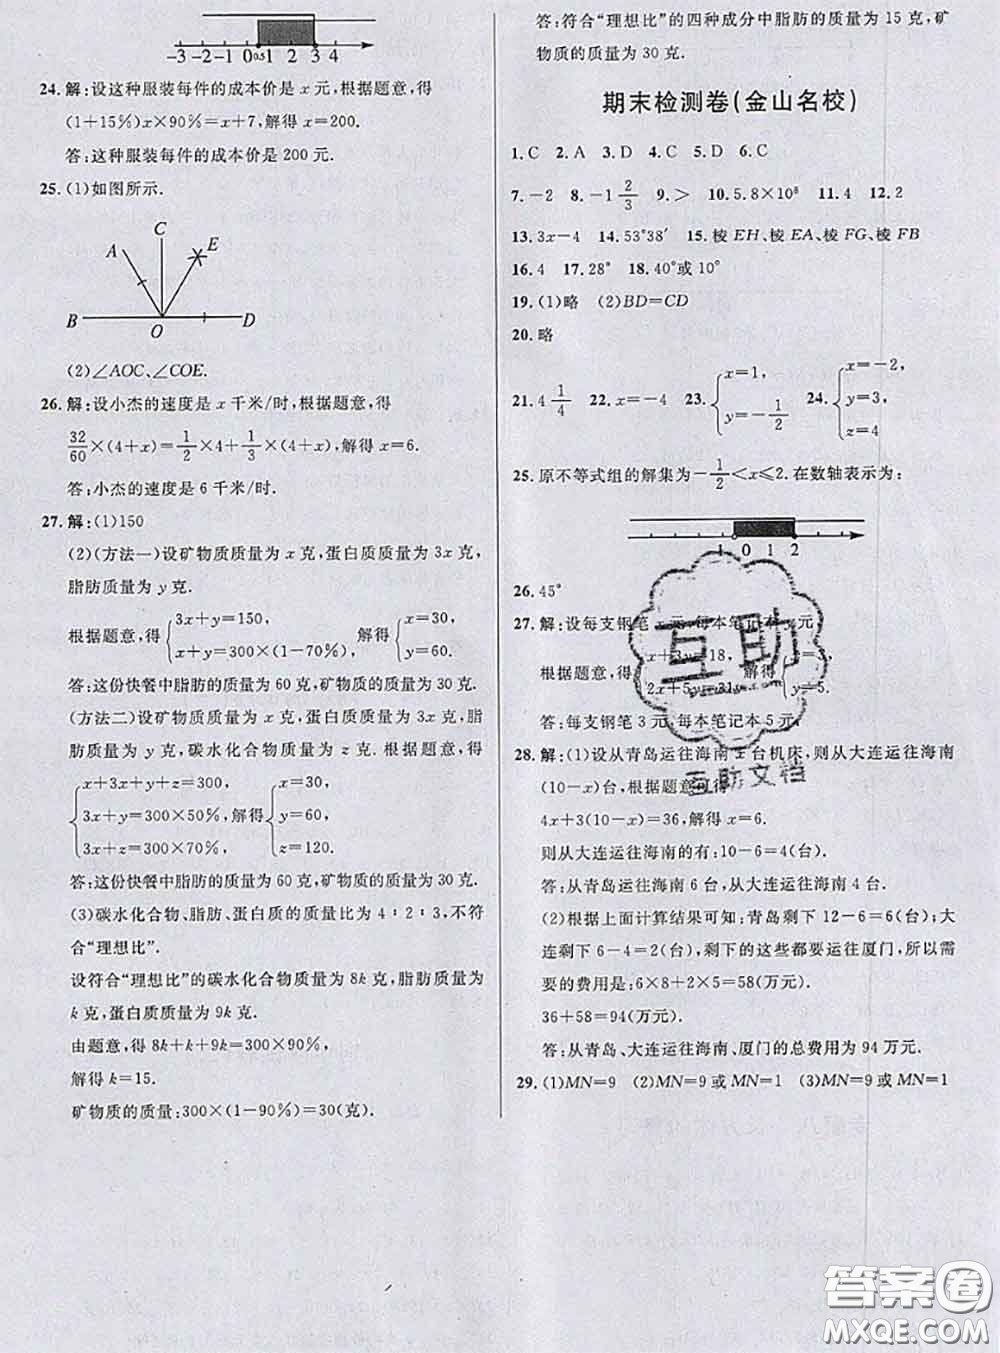 -3 -2 -1 0 0.5 1 2 3 4
24.解:设这种服装每件的成本价是 x 元,根据题意,得
(1+15%)x×90%=x+7,解得 x=200.
答:这种服装每件的成本价是 200 元.
25.(1)如图所示.
C
A
E
B
O
D
(2)∠AOC、∠COE.
26.解:设小杰的速度是 x 千米/时,根据题意,得
32/60×(4+x)=1/2×4+1/3×(4+x),解得 x=6.
答:小杰的速度是 6 千米/时.
27.解:(1)150
(2)(方法一)设矿物质质量为 x 克,蛋白质质量为 3x 克,
脂肪质量为 y 克.
根据题意,得 {3x+y=150, x+y=300×(1-70%), 解得 {x=30, y=60.
答:这份快餐中脂肪的质量为 60 克,矿物质的质量为 30 克.
(方法二)设矿物质质量为 x 克,蛋白质质量为 3x 克,脂
肪质量为 y 克,碳水化合物质量为 z 克.根据题意,得
{x+3x+y+z=300, 3x+y=300×50%, 3x+z=300×70%, 解得 {x=30, y=60, z=120.
答:这份快餐中脂肪的质量为 60 克,矿物质的质量为 30 克.
(3)碳水化合物、脂肪、蛋白质的质量比为 4∶2∶3,不符
合“理想比”.
设符合“理想比”的碳水化合物质量为 8k 克,脂肪质量为
k 克,蛋白质质量为 9k 克.
由题意,得 8k+k+9k=300×90%,
解得 k=15.
矿物质的质量:300×(1-90%)=30(克).
答:符合“理想比”的四种成分中脂肪的质量为 15 克,矿
物质的质量为 30 克.
期末检测卷(金山名校)
1.C 2.A 3.D 4.C 5.D 6.C
7.-2 8.-1 2/3 9.> 10.5.8×10⁸ 11.4 12.2
13.3x-4 14.53°38′ 15.棱 EH、棱 EA、棱 FG、棱 FB
16.4 17.28° 18.40°或 10°
19.(1)略 (2)BD=CD
20.略
21.4 1/4 22.x=-4 23.{x=1, y=-1/2 24.{x=-2, y=3, z=4
25.原不等式组的解集为-1/2<x≤2.在数轴表示为:
-1 0 1 2
26.45°
27.解:设每支钢笔 x 元,每本笔记本 y 元
根据题意,得{x+3y=18, 2x+5y=31, 解得{ y=5.
答:每支钢笔 3 元,每本笔记本 5 元.
28.解:(1)设从青岛运往海南 x 台机床,则从大连运往海南
(10-x)台,根据题意,可得
4x+3(10-x)=36,解得 x=6.
则从大连运往海南的有:10-6=4(台).
答:从青岛运往海南 6 台,从大连运往海南 4 台.
(2)根据上面计算结果可知:青岛剩下 12-6=6(台);大
连剩下 6-4=2(台),剩下的这些都要运往厦门,所以需
要的费用为:6×8+2×5=58(万元).
36+58=94(万元).
答:从青岛、大连运往海南、厦门的总费用为 94 万元.
29.(1)MN=9 (2)MN=9 或 MN=1 (3)MN=9 或 MN=1
互助
互助文档
答案圈
MXQE.COM